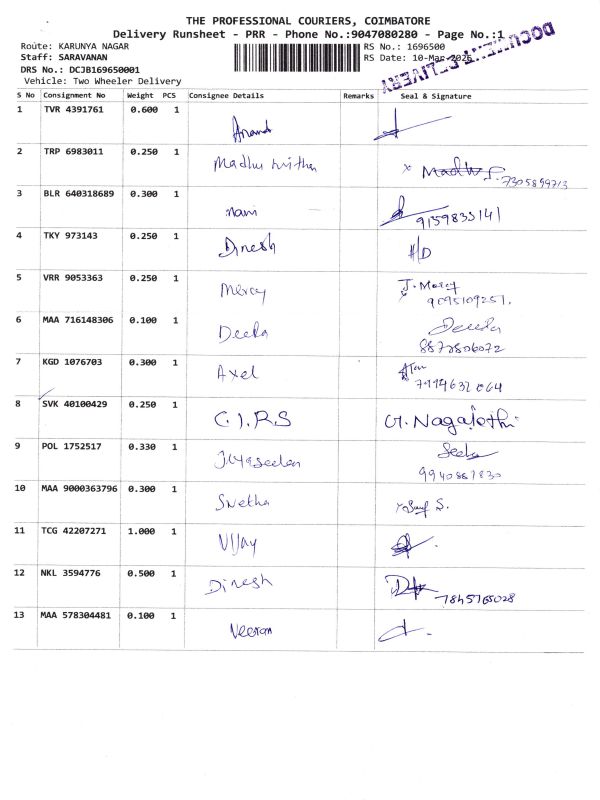 THE PROFESSIONAL COURIERS, COIMBATORE
Delivery Runsheet - PRR - Phone No.:9047080280 - Page No.:1
Route: KARUNYA NAGAR
RS No.: 1696500
Staff: SARAVANAN
RS Date: 10-Mar-2026
DOCUMENT DELIVERY
DRS No.: DCJB169650001
Vehicle: Two Wheeler Delivery
S No Consignment No Weight PCS Consignee Details Remarks Seal & Signature
1 TVR 4391761 0.600 1 Anand
2 TRP 6983011 0.250 1 Madhu x Madhu S. 7305899713
3 BLR 640318689 0.300 1 mani 9159833141
4 TKY 973143 0.250 1 Dinesh H/D
5 VRR 9053363 0.250 1 Mercy J. Mercy
9095109251.
6 MAA 716148306 0.100 1 Deeka
8872806072
7 KGD 1076703 0.300 1 Axel
8 SVK 40100429 0.250 1 C.I.RS G. Nagajothi
9 POL 1752517 0.330 1
9940887830
10 MAA 9000363796 0.300 1 Swetha
11 TCG 42207271 1.000 1 Vijay
12 NKL 3594776 0.500 1 Dinesh 7845765028
13 MAA 578304481 0.100 1 Veeran